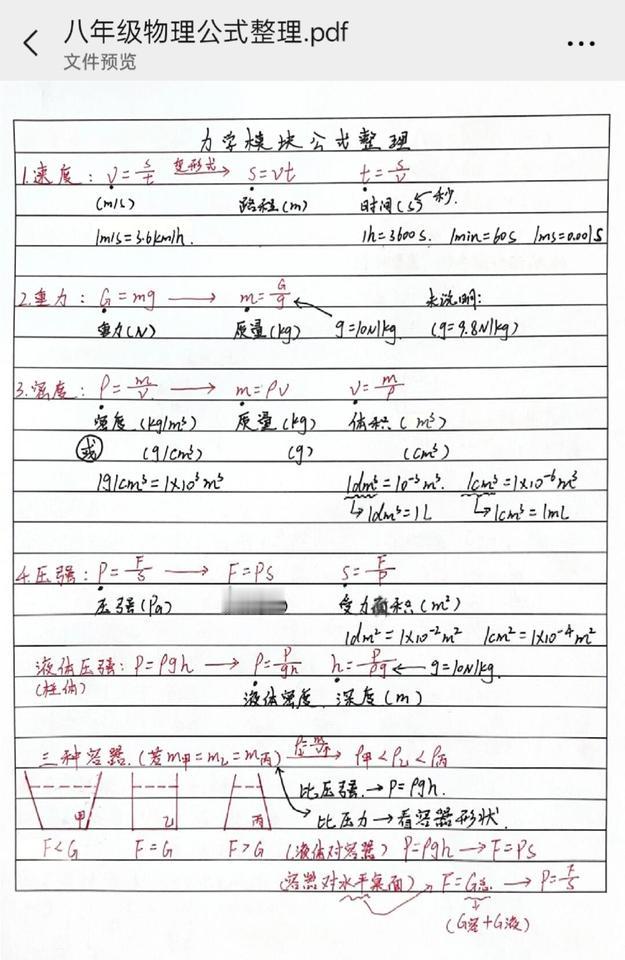 八年级物理公式整理.pdf
文件预览
力学模块公式整理
1.速度: v=s/t 变形式→ s=vt t=s/v
(m/s) 路程(m) 时间(s) 秒.
1m/s=3.6km/h. 1h=3600s. 1min=60s 1ms=0.001s
2.重力: G=mg → m=G/g 未说明:
重力(N) 质量(kg) g=10N/kg. (g=9.8N/kg)
3.密度: ρ=m/v → m=ρv v=m/ρ
密度(kg/m³) 质量(kg) 体积(m³)
或 (g/cm³) (g) (cm³)
1g/cm³=1×10³m³ 1dm³=10⁻³m³. 1cm³=1×10⁻⁶m³
↳1dm³=1L ↳1cm³=1mL
4.压强: P=F/S → F=PS S=F/P
压强(Pa) ) 受力面积(m²)
1dm²=1×10⁻²m² 1cm²=1×10⁻⁴m²
液体压强: P=ρgh → ρ=P/gh h=P/ρg ← g=10N/kg.
(柱体) 液体密度 深度(m)
三种容器.(若m甲=m乙=m丙) → ρ甲<ρ乙<ρ丙
比压强→P=ρgh.
甲 乙 丙 比压力→看容器形状.
F<G F=G F>G (液体对容器) P=ρgh→F=PS
(容器对水平桌面) F=G总→P=F/S
(G容+G液)